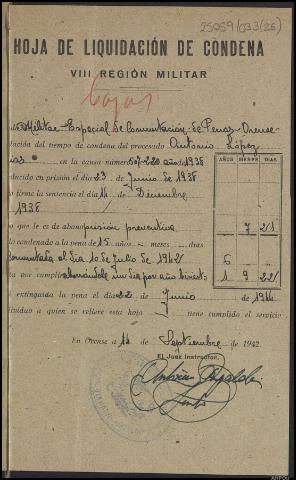 25059/033(26)
HOJA DE LIQUIDACIÓN DE CONDENA
VIII REGIÓN MILITAR
Militar Especial de Conmutación de Penas Orense
dación del tiempo de condena del procesado Antonio López
en la causa número 220 año 1938
AÑOS MESES DÍAS
ducido en prisión el día 23 de Junio de 1938
o firme la sentencia el 14 de Diciembre
1938
o que le es de abono prisión preventiva
7 21
do condenado a la pena de 15 años meses días
Conmutada el día 10 de Julio de 1942
6
sta que cumplir abonándole un día por año bisiesto
1 9 22
extinguida la pena el día 22 de Junio de 1944
dividuo a quien se refiere esta hoja tiene cumplido el servicio
En Orense a 14 de Septiembre de 1942
El Juez Instructor,
Antonio